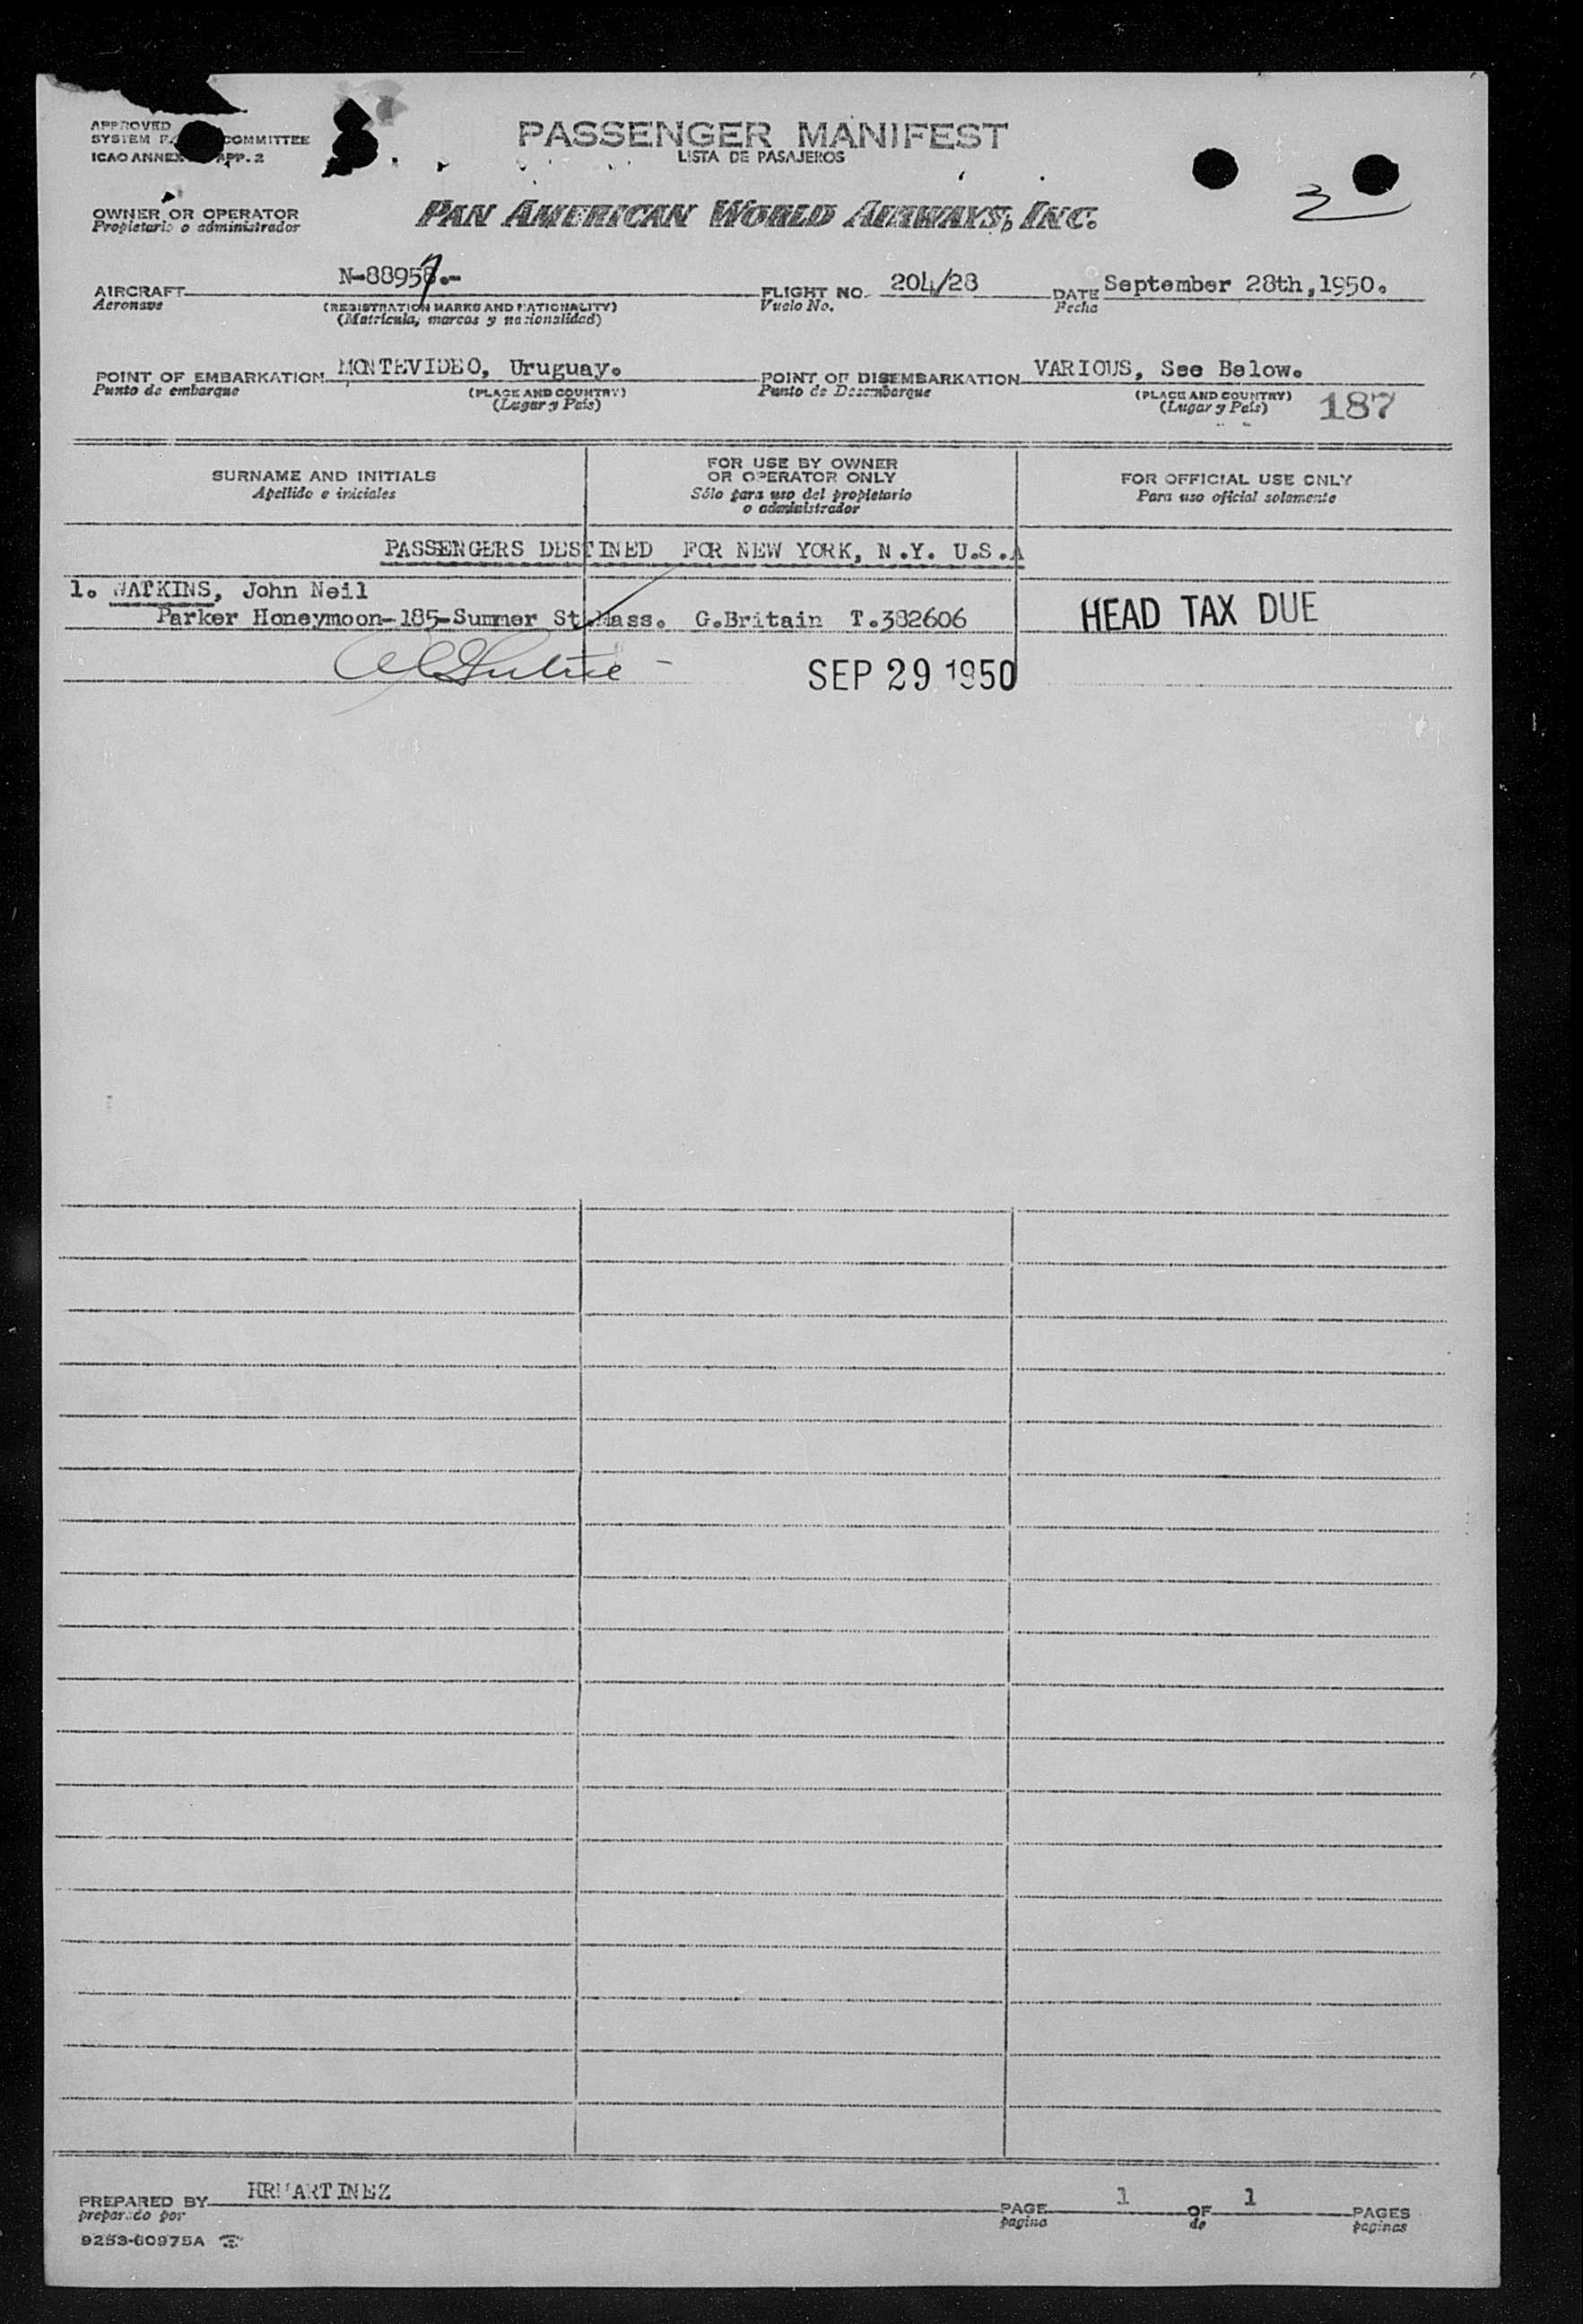 APPROVED
SYSTEM COMMITTEE
ICAO ANNEX APP. 2
PASSENGER MANIFEST
LISTA DE PASAJEROS
3
OWNER OR OPERATOR
Propietario o administrador
PAN AMERICAN WORLD AIRWAYS, INC.
AIRCRAFT N-88957.-
Aeronave
(REGISTRATION MARKS AND NATIONALITY)
(Matricula, marcas y nacionalidad)
FLIGHT NO. 204/28
Vuelo No.
DATE September 28th,1950.
Fecha
POINT OF EMBARKATION MONTEVIDEO, Uruguay.
Punto de embarque
(PLACE AND COUNTRY)
(Lugar y Pais)
POINT OF DISEMBARKATION VARIOUS, See Below.
Punto de Desembarque
(PLACE AND COUNTRY)
(Lugar y Pais)
187
SURNAME AND INITIALS
Apellido e iniciales
FOR USE BY OWNER
OR OPERATOR ONLY
Sólo para uso del propietario
o administrador
FOR OFFICIAL USE ONLY
Para uso oficial solamente
PASSENGERS DESTINED FOR NEW YORK, N.Y. U.S.A
1. WATKINS, John Neil
Parker Honeymoon-185-Summer St.Mass. G.Britain T.382606
HEAD TAX DUE
SEP 29 1950
PREPARED BY HRMARTINEZ
preparado por
PAGE 1 OF 1 PAGES
pagina de paginas
9253-60975A